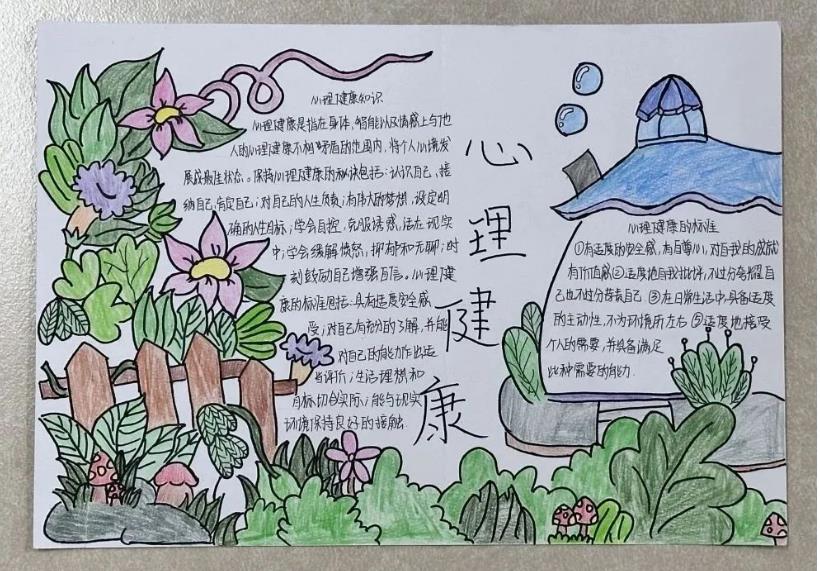 心理健康知识
心理健康是指在身体、智能以及情感上与他
人的心理健康不相矛盾的范围内，将个人心境发
展成最佳状态。保持心理健康的秘诀包括：认识自己，接
纳自己，肯定自己；对自己的人生负责；有伟大的梦想，设定明
确的人生目标；学会自控，克服诱惑，活在现实
中；学会缓解愤怒，抑郁和无聊；时
刻鼓励自己增强百信。心理健
康的标准包括：具有适度安全感
受；对自己有充分的了解，并能
对自己的能力作出适
当评价；生活理想和
目标切合实际；能与现实
环境保持良好的接触
心
理
健
康
心理健康的标准
①有适度的安全感，有自尊心，对自我的成就
有价值感②适度地自我批评，不过分夸耀自
己也不过分苛责自己③在日常生活中，具备适度
的主动性，不为环境所左右⑤适度地接受
个人的需要，并具备满足
此种需要的能力.